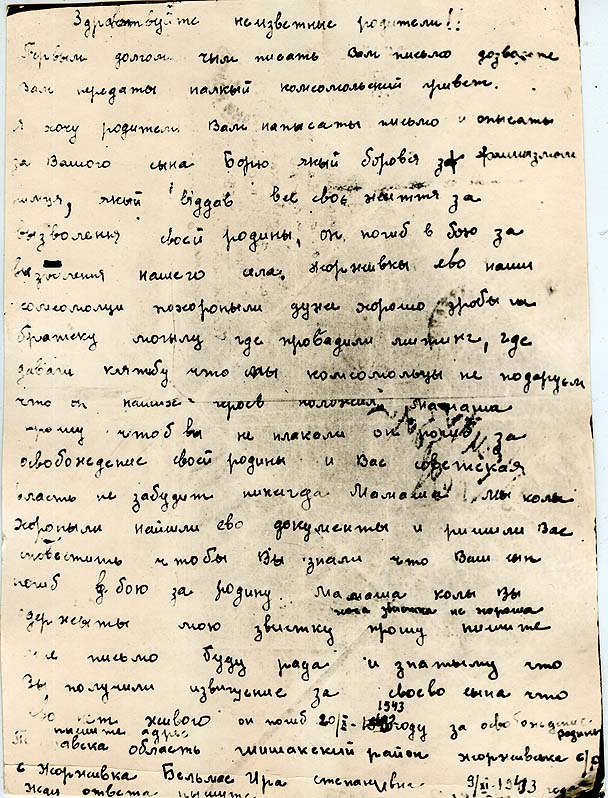 Здравствуйте неизвестные родители!!
Первым долгом чим писать Вам письмо дозвольте
Вам передаты палкый комсомольский привет.
Я хочу родители Вам написаты письмо и описаты
за Вашого сына Борю якый боровся за
якый віддав все своє життя за
вызволення своей родины, он погиб в бою за
вызволення нашего села Жорживкы ево наши
комсомолци похоронылы дуже хорошо зробылы
братску могилу где проводили митинг, где
давали клятбу что мы комсомольцы не подарум
что наших героев Мамаша
прошу чтоб вы не плакали он погиб за
освобождение своей родины и Вас советская
власть не забудет никигда Мамаша мы колы
хоронылы найшли ево документы и ришили Вас
сповестить чтобы Вы знали что Ваш сын
погиб в бою за родину. Мамаша колы Вы
хоча звистка не хороша
одержыты мою звистку прошу пишите
мне письмо буду рада и знатыму что
Вы получили извищение за своево сына что
1943
ево нет живого он погиб 20/IX- году за освобождение
пишите адрес родины
Полтавска область шишакский район жоржівська с/с
с Жорживка Бельмас Ира степановна 9/XI-1943 года
Жду ответа пишите